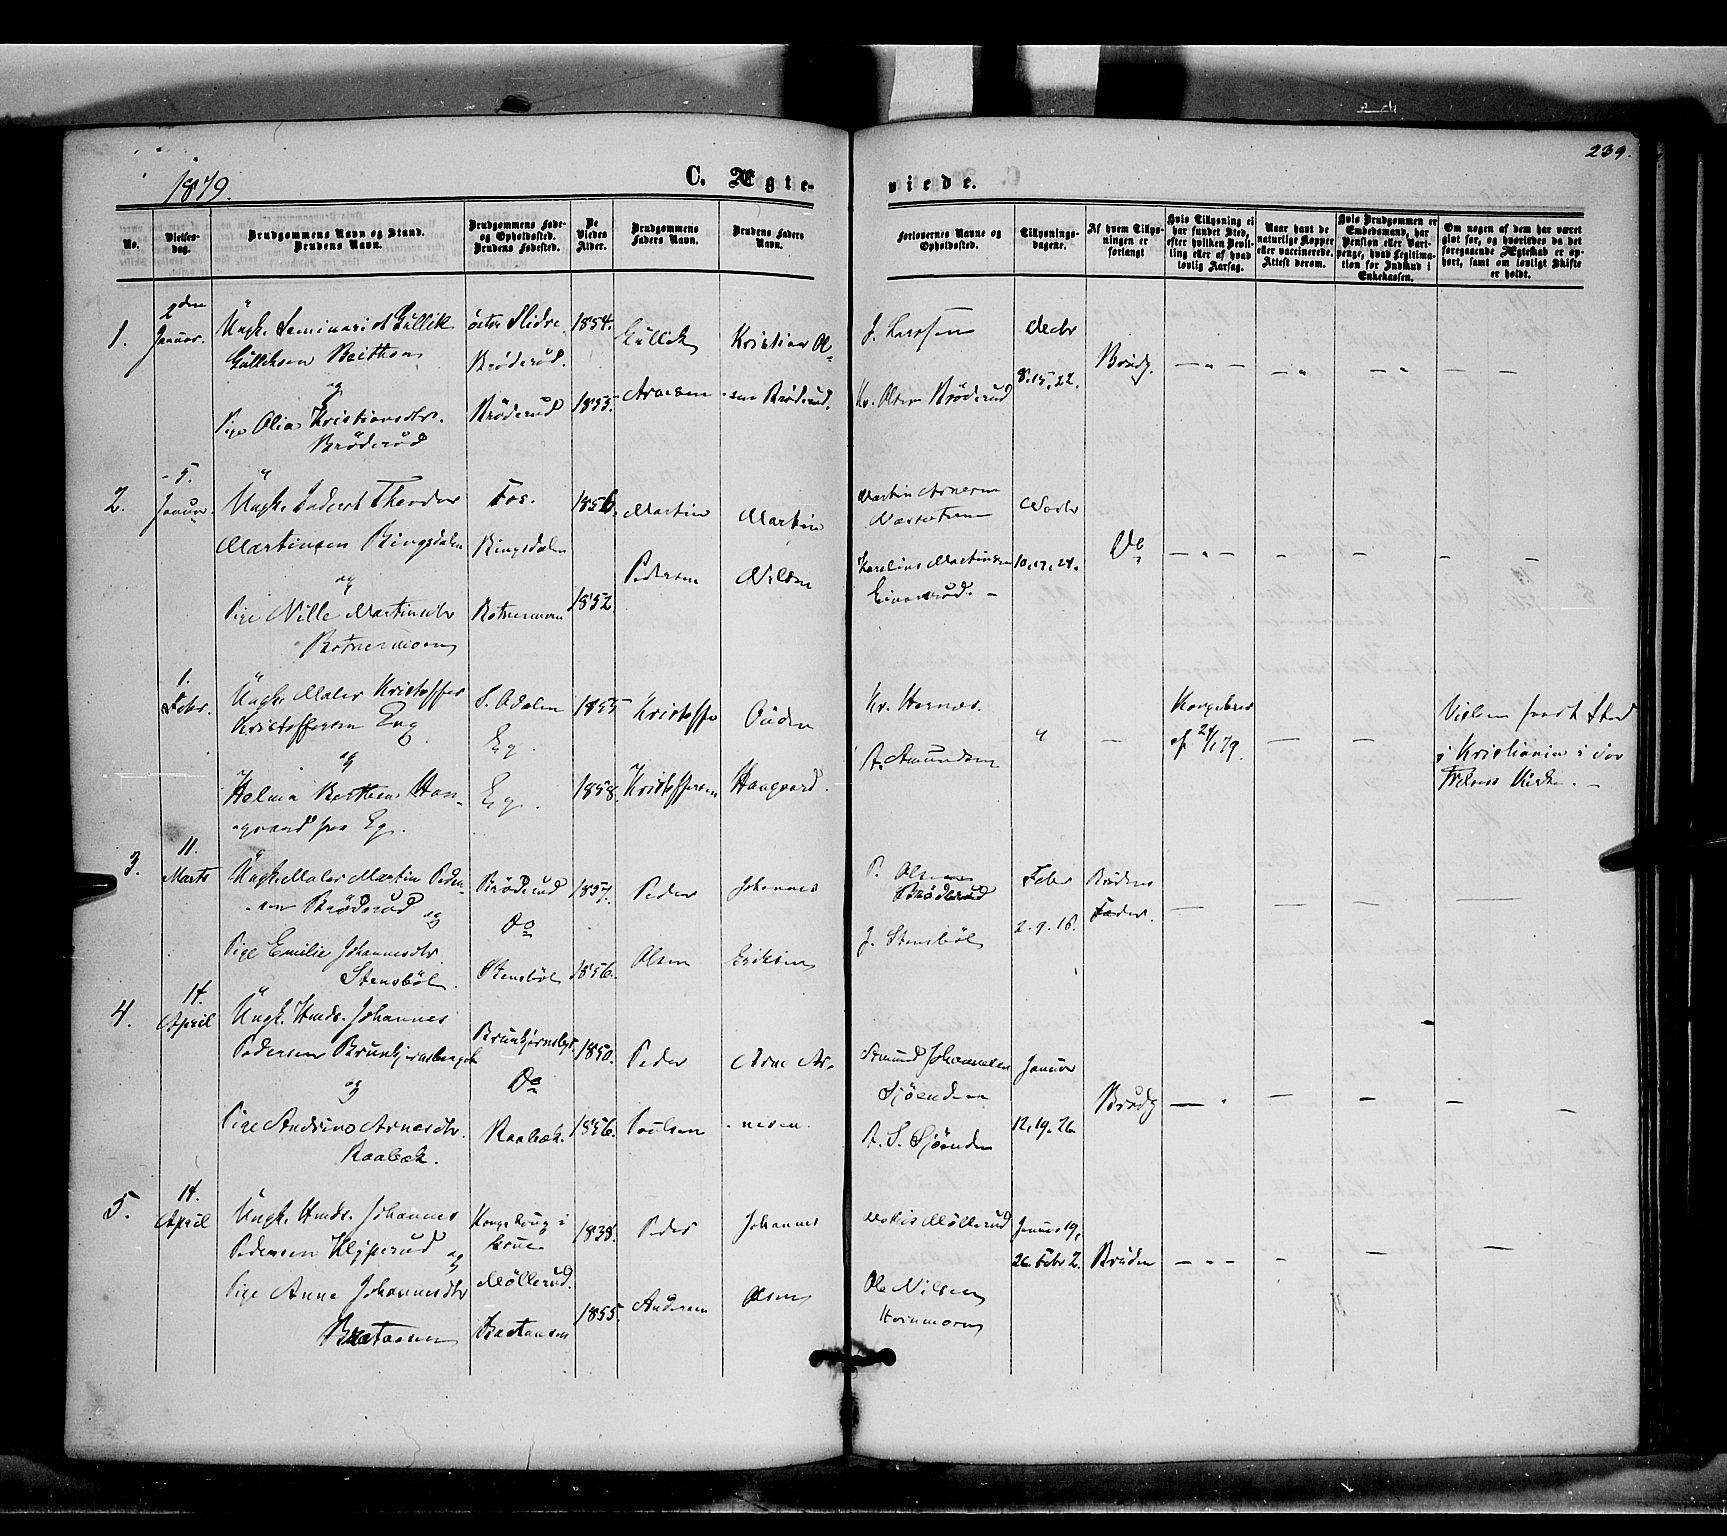 239.
1879.
C. Ægte-
viede.
No.
Vielses-
dag.
Brudgommens Navn og Stand.
Brudens Navn.
Brudgommens Føde-
og Opholdssted.
Brudens Fødested.
De
Viedes
Alder.
Brudgommens
Faders Navn.
Brudens Faders
Navn.
Forlovernes Navne og
Opholdssted.
Tillysnings-
dagene.
Af hvem Tillys-
ningen er
forlangt
Hvis Tillysning ei
har fundet Sted,
efter hvilken Bevil-
ling eller af hvad
lovlig Aarsag.
Naar havt de
naturlige Kopper
eller vaccinerede.
Attest derom.
Hvis Brudgommen er
Embedsmand, har
Pension eller Vart-
penge, hvad Legitima-
tion for Indskud i
Enkekassen.
Om nogen af dem har været
gift før, og hvorledes da det
foregaaende Ægteskab er op-
hørt, samt om lovligt Skifte
er holdt.
1.
2den
Januar.
Ungk. Seminarist Gullik
Gulliksen
og
Pige Olia Kristiansdtr.
Brøderud
østre Slidre.
Brøderud.
Brøderud
1854.
1853.
Gullik
Arnesen
Kristian Ol-
sen Brøderud.
J. Larsson
Kr. Olsen Brøderud
Decbr
8. 15. 22.
Brudg.
2.
5.
Januar.
Ungk. Theodor
Martinsen Ringsdalen
og
Pige Nille Martinsdtr
Botnermoen
Fos.
Ringsdalen
Botnermoen
1856.
1852.
Martin
Pedersen
Martin
Nilsen
Martin Arnesen
Karelius Martinsen
Novbr
10. 17. 24.
Do
1.
Febr.
Ungk. Maler Kristoffer
Kristoffersen Eng
og
Helmia Berthea Haa-
gaard fra Eg.
S. Odalen
Eg.
Eg.
1855
1858.
Kristoffer
Kristoffersen
Gudm
Haagaard.
Kr. Hornæs.
A. Amundsen
Kongebrev
af 24/1 79.
Vielsen fandt Sted
i Kristiania i vor
Frelsers Kirke.
3.
11.
Marts
Ungk. Maler Martin Peder-
sen Brøderud og
Pige Emilie Johannesdtr.
Stensbøl.
Brøderud
Do
Stensbøl
1857.
1856.
Peder
Olsen
Johannes
Eriksen
P. Olsen
Brøderud
J. Stensbøl
Febr
2. 9. 16.
Brudens
Fader.
4.
14.
April
Ungk. Hmds. Johannes
Pedersen Brunkjernsberget
og
Pige Andrine Arnesdtr.
Raabæk.
Brunkjernsbgt.
Do
Raabæk.
1850.
1856.
Peder
Poulsen
Arne Ar-
nesen.
Amund Johannesen
Sjøenden
A. S. Sjøenden
Januar
12. 19. 26.
Brudg
5.
14.
April
Ungk. Hmds. Johannes
Pedersen Klypperud og
Pige Anna Johannesdtr
Brataasen
Kongskoug i
Grue
Møllerud.
Brataasen
1838.
1855.
Peder
Andersen
Johannes
Olsen
Møllerud
Ole Nilsen
Januar 19,
26. Febr 2.
Bruden